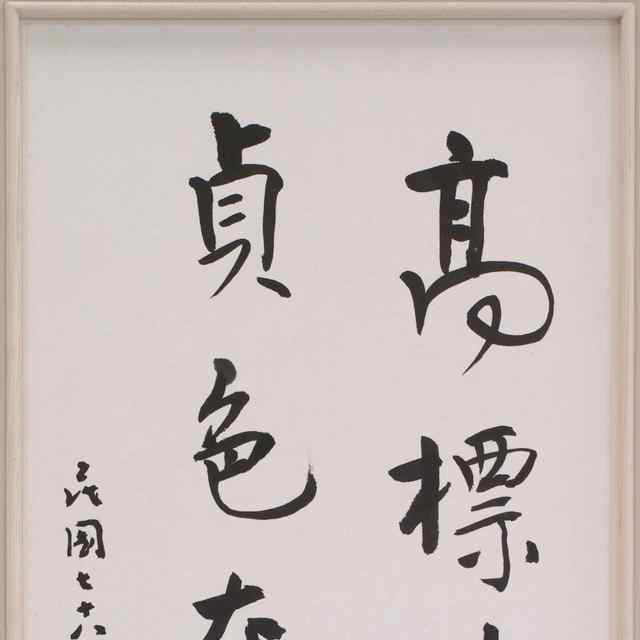 高標
貞色
民國七十八